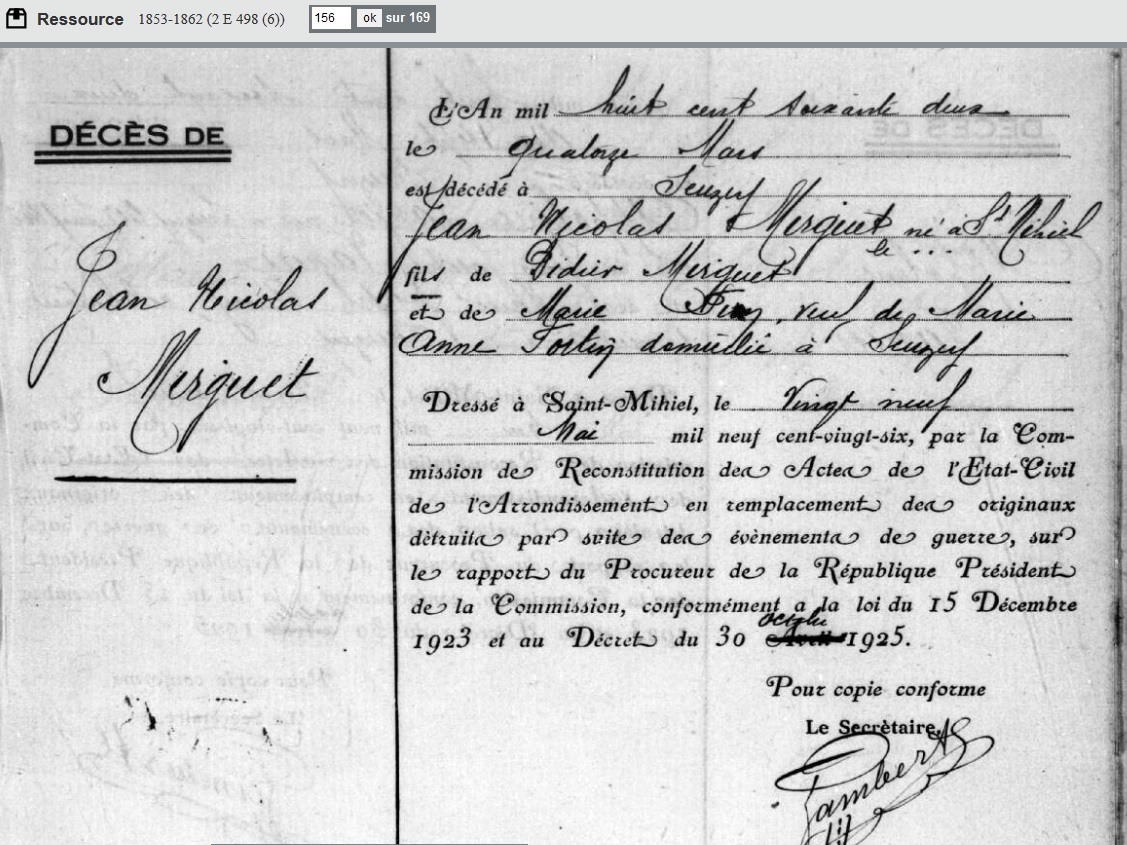 Ressource 1853-1862 (2 E 498 (6)) 156 ok sur 169
DÉCÈS DE
Jean Nicolas
Merguet
L'An mil huit cent soixante deux
le quatorze Mars
est décédé à Seuzey
Jean Nicolas Merguet né à St Mihiel
le ...
fils de Didier Merguet
et de Marie, veuf de Marie
Anne Fortin domicilié à Seuzey
Dressé à Saint-Mihiel, le vingt neuf
Mai mil neuf cent-vingt-six, par la Com-
mission de Reconstitution des Actes de l'Etat-Civil
de l'Arrondissement en remplacement des originaux
détruits par suite des évènements de guerre, sur
le rapport du Procureur de la République Président
de la Commission, conformément a la loi du 15 Décembre
octobre
1923 et au Décret du 30 Avril 1925.
Pour copie conforme
Le Secrètaire,